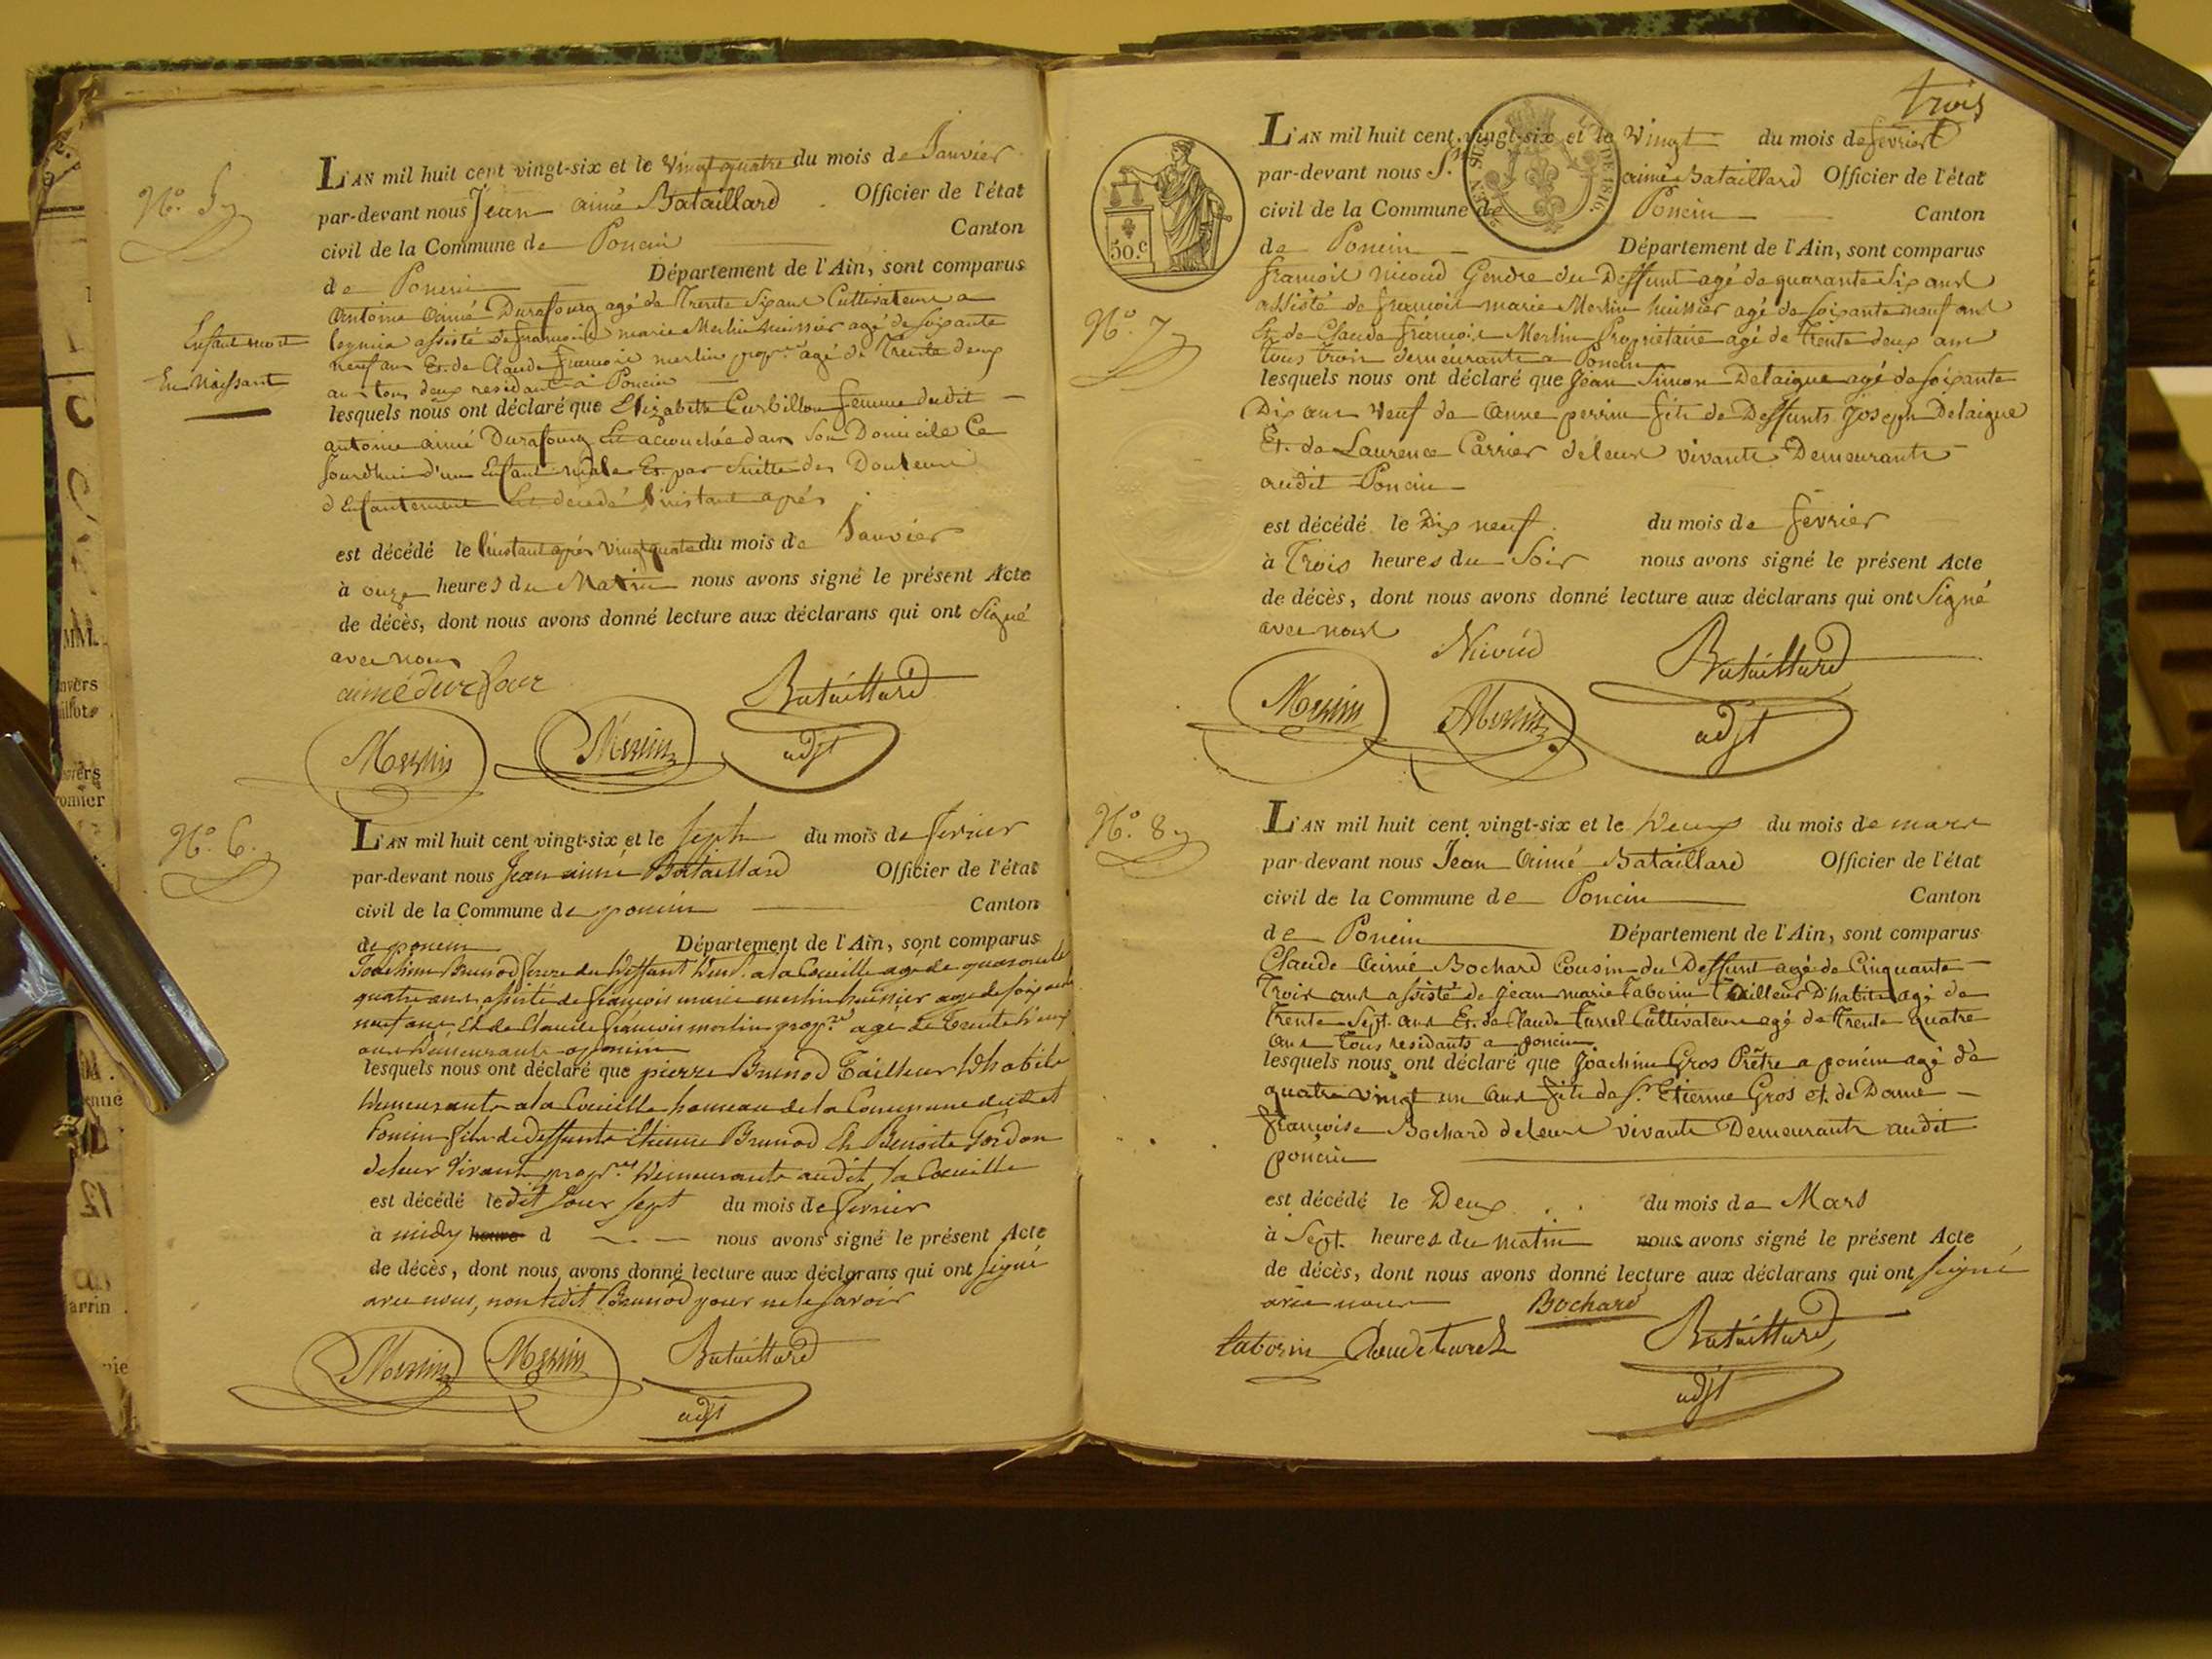 N.º 5
Enfant mort
En Naissant
L'AN mil huit cent vingt-six et le vingt quatre du mois de Janvier
par-devant nous Jean aimé Bataillard Officier de l'état
civil de la Commune de Poncin Canton
de Poncin Département de l'Ain, sont comparus
Antoine Aimé Durafourg agé de Trente Six ans Cultivateur a
assisté de francois marie Merlin huissier agé de soixante
neuf ans Et de Claude francois merlin prop.re agé de Trente deux
ans tous deux residants a Poncin
lesquels nous ont déclaré que Elizabeth Curbillon femme dudit
antoine aimé Durafourg Est accouchée dans Son Domicile Ce
Jourdhui d'un Enfant mâle Et par Suitte des Douleurs
d'Enfantement Est décédé l'instant après
est décédé le l'instant après vingt quatre du mois de Janvier
à onze heures du Matin nous avons signé le présent Acte
de décès, dont nous avons donné lecture aux déclarans qui ont Signé
avec nous
aimé durafour
Bataillard
Merlin Merlin adjt
N.º 6.
L'AN mil huit cent vingt-six et le Sept du mois de fevrier
par-devant nous Jean aimé Bataillard Officier de l'état
civil de la Commune de poncin Canton
de poncin Département de l'Ain, sont comparus
Joachim Brunod frere du Deffunt Dem.t a la Coeuille agé de quarante
quatre ans assisté de françois marie merlin huissier age de soixante
neuf ans Et de Claude françois merlin prop.re agé de Trente Deux
ans Demeurants a poncin
lesquels nous ont déclaré que pierre Brunod Tailleur D'habits
Demeurants a la Coeuille hameau de la Commune dudit
Poncin fils de Deffunts Etienne Brunod Et Benoite Gordon
de leur Vivant prop.res Demeurants audit la Coeuille
est décédé le dit Jour Sept du mois de fevrier
à midy heure d nous avons signé le présent Acte
de décès, dont nous avons donné lecture aux déclarans qui ont signé
avec nous, non ledit Brunod pour ne le savoir
Merlin Merlin Bataillard
adjt
trois
L'AN mil huit cent vingt-six et le Vingt du mois de fevrier
par-devant nous aimé Bataillard Officier de l'état
civil de la Commune de Poncin Canton
de Poncin Département de l'Ain, sont comparus
50.c
N.º 7
francois nicoud Gendre du Deffunt agé de quarante Six ans
assisté de francois marie Merlin huissier agé de soixante neuf ans
Et de Claude françois Merlin Proprietaire agé de Trente deux ans
tous trois demeurants a Poncin
lesquels nous ont déclaré que Jean Simon Delaigue agé de soixante
Dix ans Veuf de anne perrin fils de Deffunts Joseph Delaigue
Et de Laurence Carrier de leurs vivants Demeurants
audit Poncin
est décédé le Dix neuf du mois de fevrier
à Trois heures du Soir nous avons signé le présent Acte
de décès, dont nous avons donné lecture aux déclarans qui ont Signé
avec nous
Bataillard
Merlin Merlin adjt
N.º 8
L'AN mil huit cent vingt-six et le Deux du mois de mars
par-devant nous Jean Aimé Bataillard Officier de l'état
civil de la Commune de Poncin Canton
de Poncin Département de l'Ain, sont comparus
Claude Aimé Bochard Cousin du Deffunt agé de Cinquante
Trois ans assisté de Jean marie Taborin Tailleur D'habits agé de
Trente Sept ans Et de Claude Turrel Cultivateur agé de Trente quatre
ans tous residants a poncin
lesquels nous ont déclaré que Joachim Gros Prêtre a poncin agé de
quatre vingt un ans fils de S.r Etienne Gros et de Dame
françoise Bochard de leurs vivants Demeurants audit
poncin
est décédé le Deux du mois de Mars
à Sept heures du matin nous avons signé le présent Acte
de décès, dont nous avons donné lecture aux déclarans qui ont signé
avec nous Bochard
taborin Bataillard
adjt